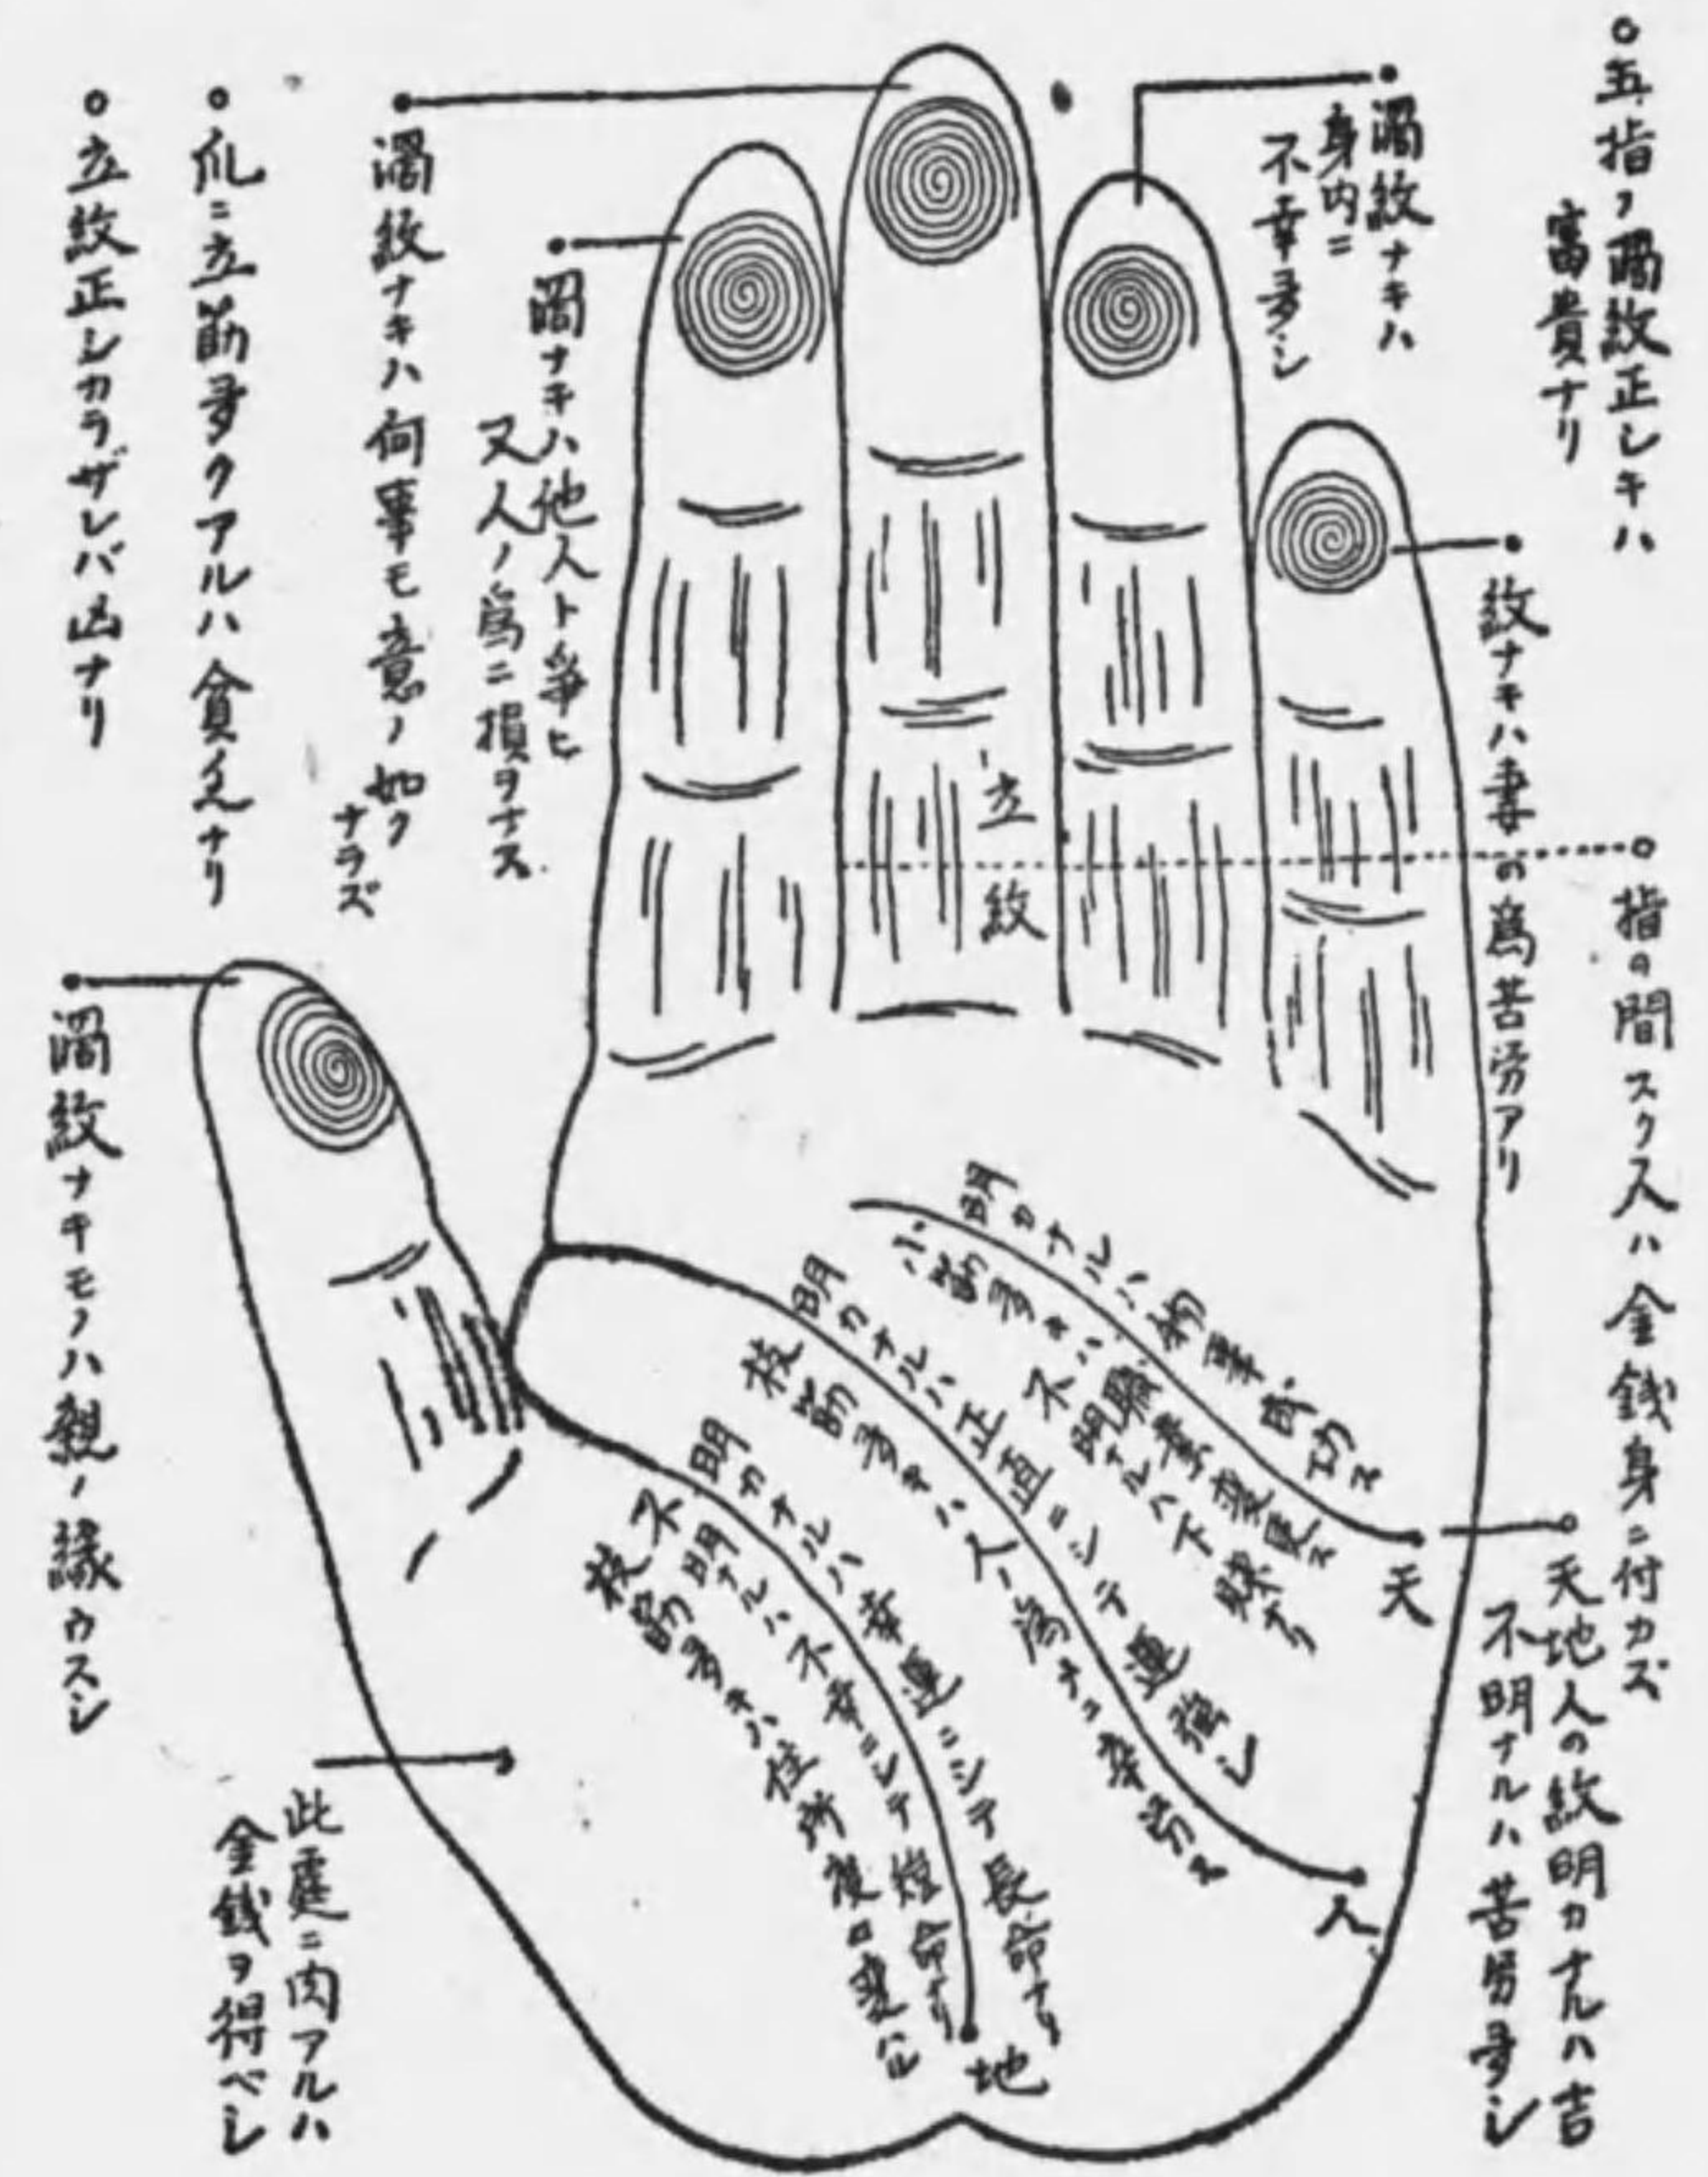 ○五指ノ渦紋正シキハ
富貴ナリ
渦紋ナキハ
身内ニ
不幸多シ
紋ナキハ妻の為苦労アリ
○指の間スク人ハ金銭身ニ付カズ
○天地人の紋明カナルハ吉
不明ナルハ苦労多シ
渦紋ナキハ何事モ意ノ如ク
ナラズ
渦ナキハ他人ト争ヒ
又人ノ為ニ損ヲナス
○爪ニ立筋多クアルハ貧乏ナリ
○立紋正シカラザレバ凶ナリ
立紋
渦紋ナキモノハ親ノ縁ウスシ
明カナルハ物事成功ス
小筋多キハ職業変更ス
不明ナルハ下賤ナリ
天
明カナルハ正直ニシテ運強シ
枝筋多キハ人ノ為ナユ辛労ス
人
明カナルハ幸運ニシテ長命ナリ
不明ナルハ不幸ニシテ短命ナリ
枝筋多キハ住所度々変ハル
地
此處ニ肉アルハ
金銭ヲ得ベシ